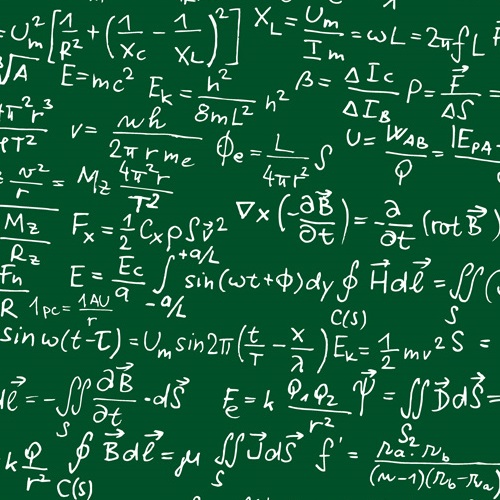 = U²ₘ [1/R² + (1/X_C − 1/X_L)²] X_L = Uₘ/Iₘ = ωL = 2πfL
³√A E=mc² E_k = h²/8mL² h² β = ΔI_C/ΔI_B P = F⃗/ΔS =
4π²r³/ρT² v = nh/2πrmₑ ϕₑ = L/4πr² S U = W_AB/Q = |E_PA −
v²/r = M_Z 4π²r/T²
M_Z/R_Z Fₓ = 1/2 CₓρSv⃗² ∇×(−∂B⃗/∂t) = ∂/∂t (rot B⃗)
Fₙ/R E = E_C/a ∫_{−a/L}^{+a/L} sin(ωt+ϕ)dy ∮_{C(S)} H⃗dl⃗ = ∬_S (
1pc = 1AU/r
sin ω(t−τ) = Uₘ sin2π(t/T − x/λ) E_k = 1/2 mv² S =
dl⃗ = −∬_S ∂B⃗/∂t · dS⃗ Fₑ = k Q₁Q₂/r² Ψ⃗ = ∬_{S₂} D⃗dS⃗ =
k Q/r² ∮_{C(S)} B⃗dl⃗ = μ ∬_S J⃗dS⃗ f' = r_a · r_b/(n−1)(r_b−r_a)